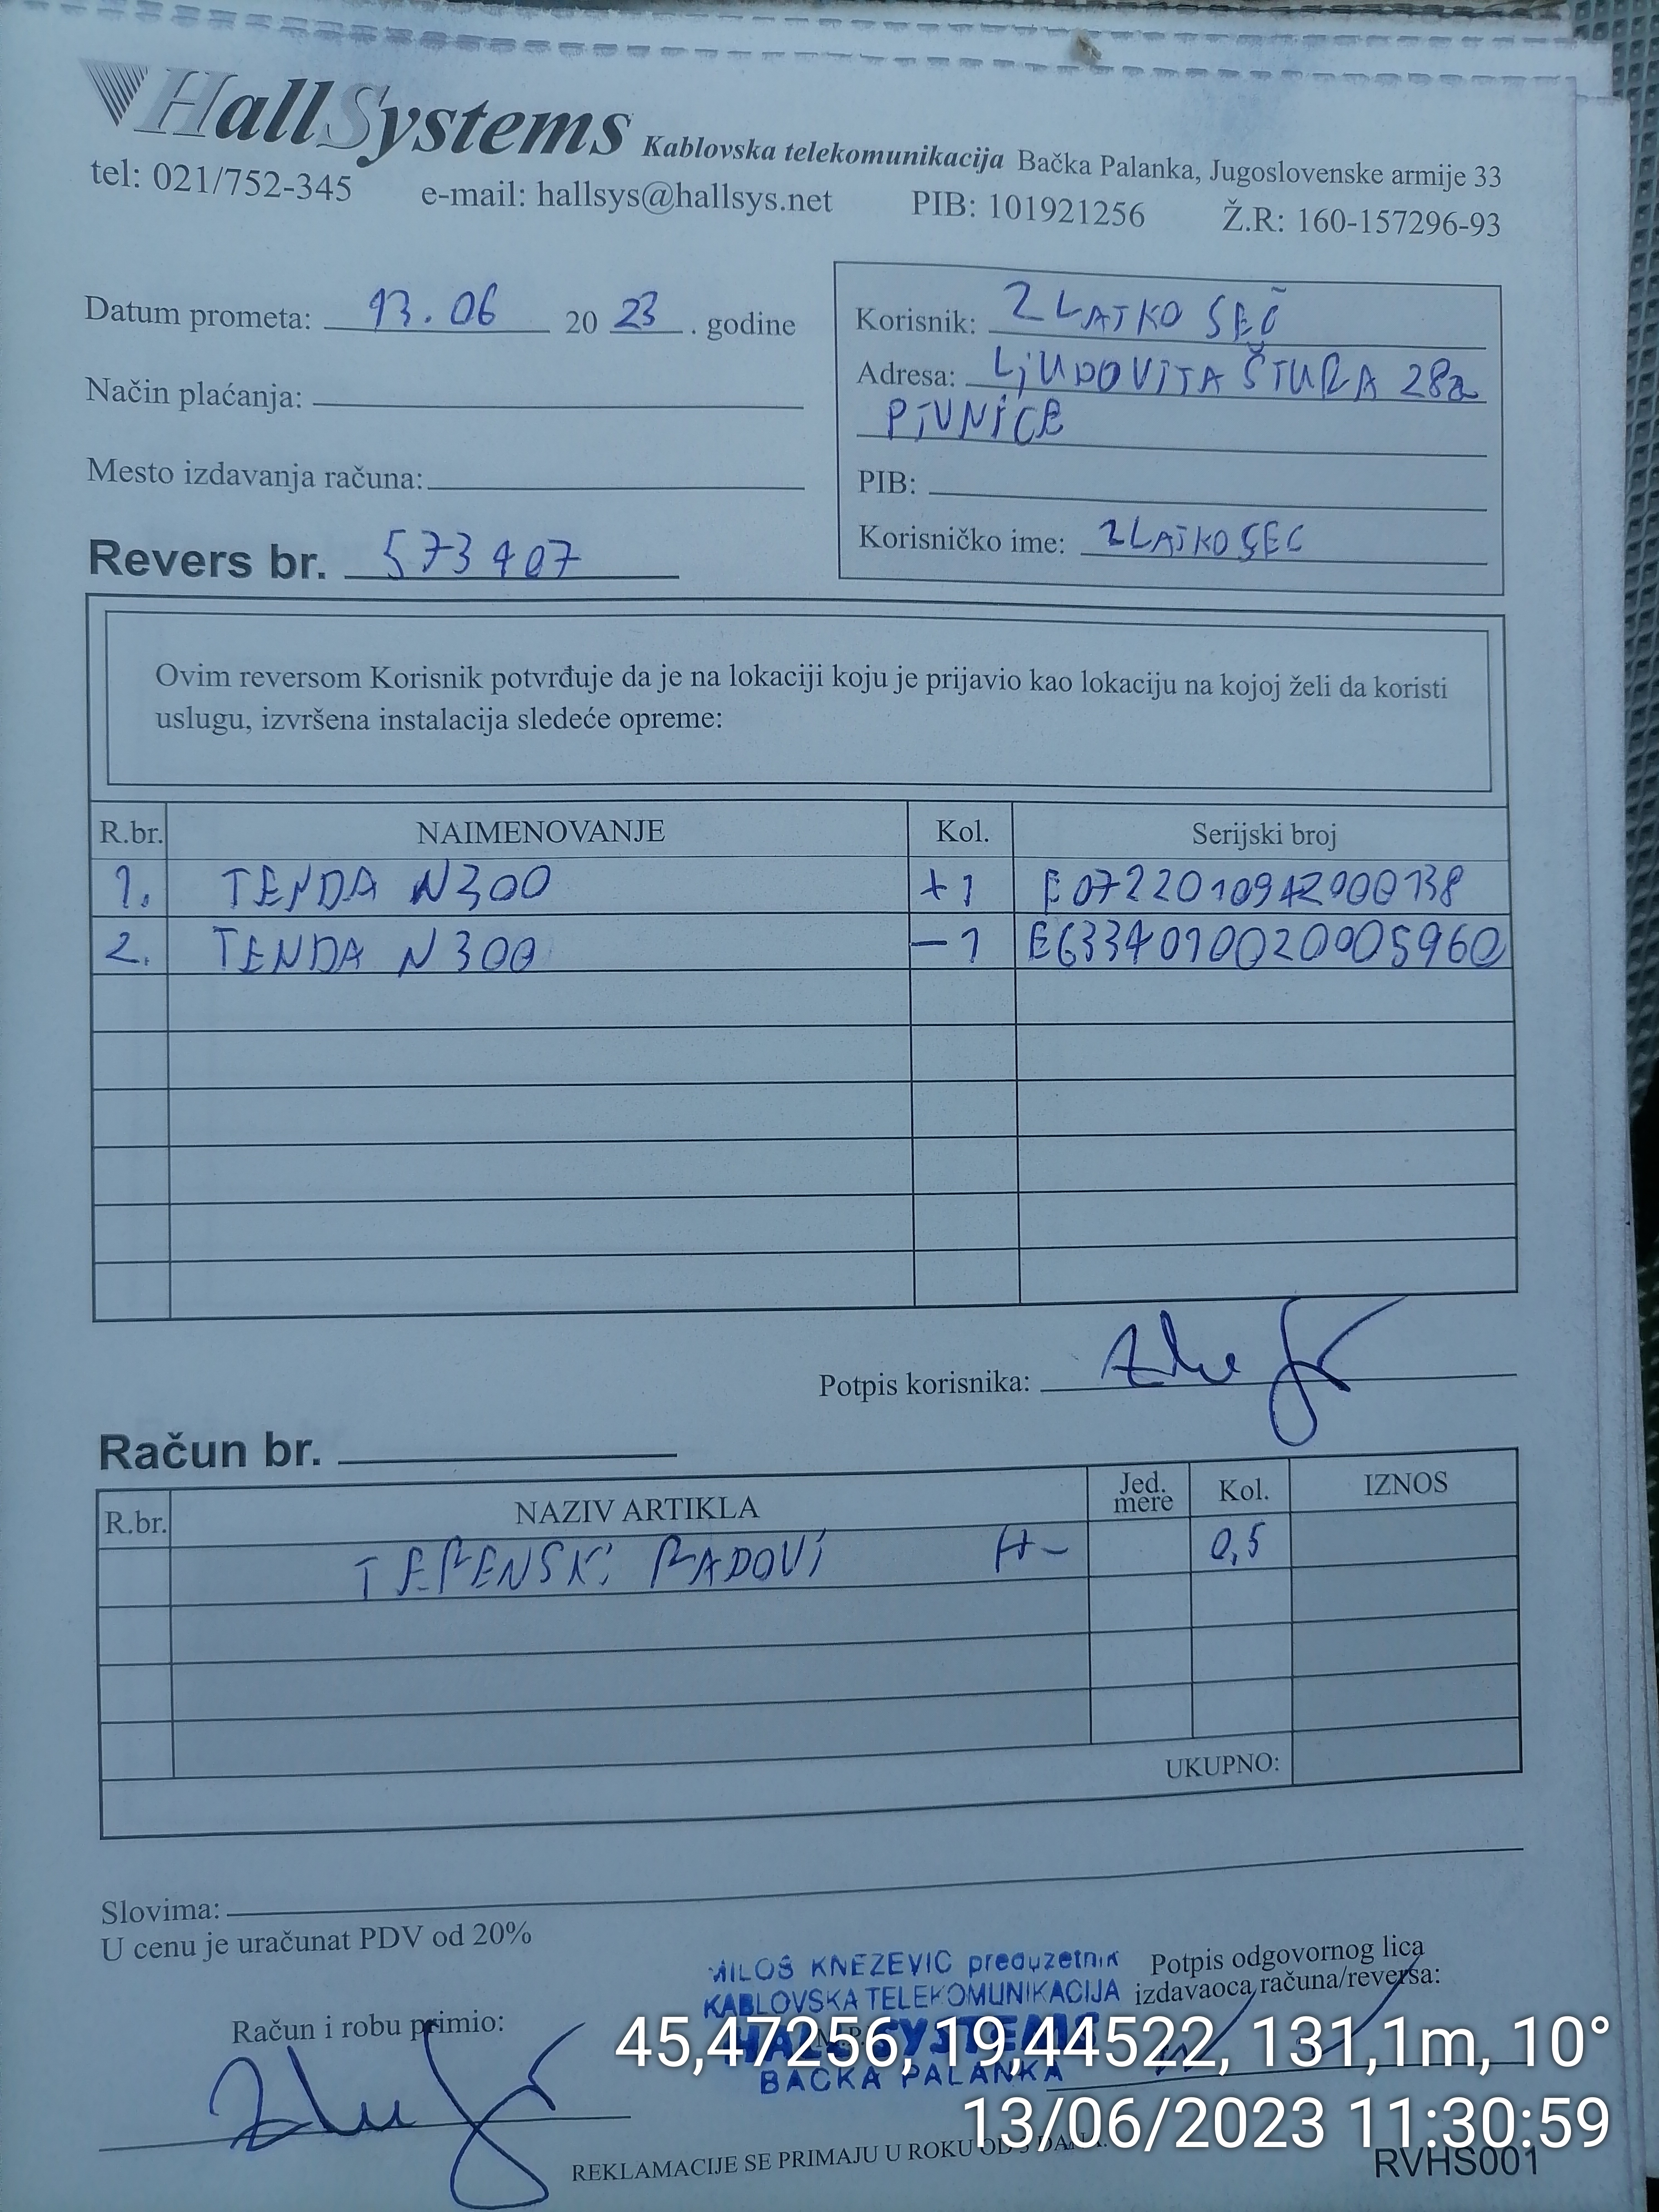 HallSystems Kablovska telekomunikacija Bačka Palanka, Jugoslovenske armije 33
tel: 021/752-345 e-mail: hallsys@hallsys.net PIB: 101921256 Ž.R: 160-157296-93
Datum prometa: 13.06 20 23 . godine
Način plaćanja:
Mesto izdavanja računa:
Revers br. 573407
Korisnik: ZLATKO SEČ
Adresa: LjUDOVITA ŠTURA 28a
PIVNICE
PIB:
Korisničko ime: ZLATKOSEC
Ovim reversom Korisnik potvrđuje da je na lokaciji koju je prijavio kao lokaciju na kojoj želi da koristi
uslugu, izvršena instalacija sledeće opreme:
R.br. NAIMENOVANJE Kol. Serijski broj
1. TENDA N300 +1 E0722010942000138
2. TENDA N300 -1 E6334010020005960
Potpis korisnika:
Račun br.
R.br. NAZIV ARTIKLA Jed. mere Kol. IZNOS
TERENSKI RADOVI H- 0,5
UKUPNO:
Slovima:
U cenu je uračunat PDV od 20%
MILOŠ KNEZEVIC preduzetnik
KABLOVSKA TELEKOMUNIKACIJA
HALL SYSTEMS
BACKA PALANKA
Potpis odgovornog lica
izdavaoca računa/reversa:
Račun i robu primio:
45,47256, 19,44522, 131,1m, 10°
13/06/2023 11:30:59
REKLAMACIJE SE PRIMAJU U ROKU OD 3 DANA.
RVHS001